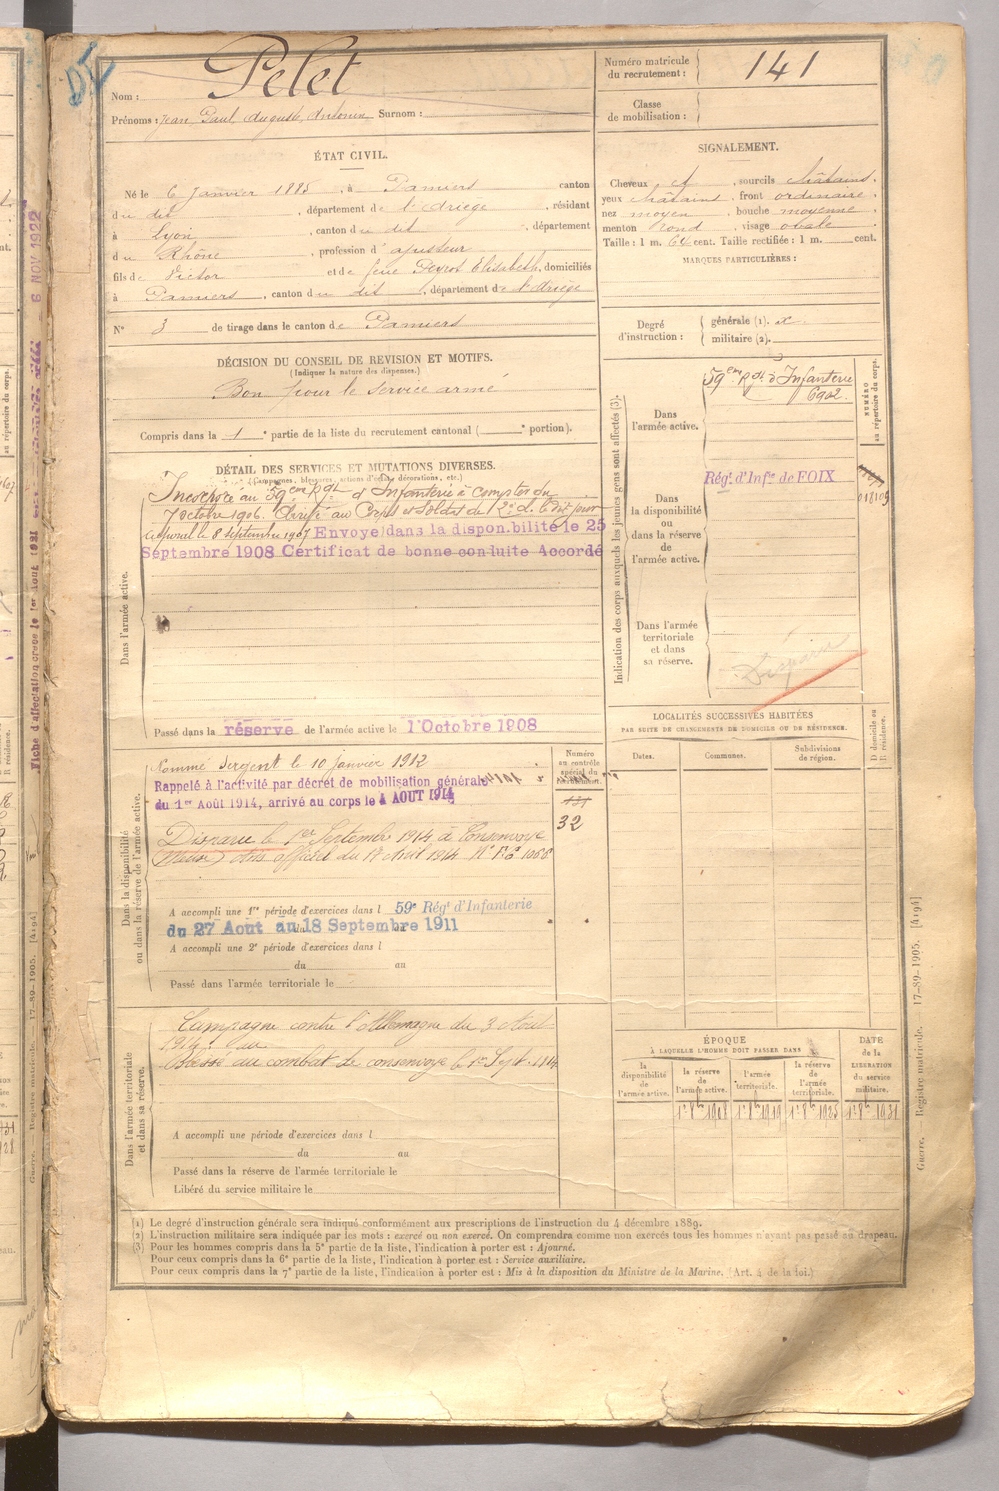 Pelet
Nom :
Prénoms : Jean, Paul, Auguste, Antonin Surnom :
Numéro matricule du recrutement : 141
Classe de mobilisation :
ÉTAT CIVIL.
Né le 6 Janvier 1885, à Pamiers canton
du dit, département de l'Ariège, résidant
à Lyon, canton du dit, département
du Rhône, profession d'ajusteur
fils de Victor et de feue Peyrot Elisabeth, domiciliés
à Pamiers, canton du dit, département de l'Ariège
N° 3 de tirage dans le canton de Pamiers
SIGNALEMENT.
Cheveux et, sourcils châtains,
yeux châtains, front ordinaire,
nez moyen, bouche moyenne,
menton rond, visage ovale.
Taille : 1 m. 64 cent. Taille rectifiée : 1 m. cent.
MARQUES PARTICULIÈRES :
Degré d'instruction :
générale (1).
militaire (2).
DÉCISION DU CONSEIL DE REVISION ET MOTIFS.
(Indiquer la nature des dispenses.)
Bon pour le service armé
Compris dans la 1e partie de la liste du recrutement cantonal ( e portion).
DÉTAIL DES SERVICES ET MUTATIONS DIVERSES.
(Campagnes, blessures, actions d'éclat, décorations, etc.)
Dans l'armée active.
Incorporé au 59eme Rgt d'Infanterie à compter du
7 octobre 1906. Arrivé au Corps et Soldat de 2e cl. le dit jour
Caporal le 8 septembre 1907 Envoyé dans la disponibilité le 25
Septembre 1908 Certificat de bonne conduite Accordé
Passé dans la réserve de l'armée active le 1 Octobre 1908
Dans la disponibilité ou dans la réserve de l'armée active.
Nommé Sergent le 10 janvier 1912
Rappelé à l'activité par décret de mobilisation générale
du 1er Août 1914, arrivé au corps le 4 AOUT 1914
Disparu le 1er Septembre 1914 à Consenvoye
(Meuse)
A accompli une 1re période d'exercices dans l 59e Régt d'Infanterie
du 27 Août au 18 Septembre 1911
A accompli une 2e période d'exercices dans l
du au
Passé dans l'armée territoriale le
Numéro au contrôle spécial du recrutement.
32
Dans l'armée territoriale et dans sa réserve.
Campagne contre l'Allemagne du 3 Août
1914 au
Blessé au combat de Consenvoye le 1er Sept. 1914
A accompli une période d'exercices dans l
du au
Passé dans la réserve de l'armée territoriale le
Libéré du service militaire le
Indication des corps auxquels les jeunes gens sont affectés (3).
NUMÉRO au répertoire du corps.
Dans l'armée active.
59eme Rgt d'Infanterie
6902
Dans la disponibilité ou dans la réserve de l'armée active.
Régt d'Infie de FOIX
018109
Dans l'armée territoriale et dans sa réserve.
Disparu
LOCALITÉS SUCCESSIVES HABITÉES
PAR SUITE DE CHANGEMENTS DE DOMICILE OU DE RÉSIDENCE.
Dates.
Communes.
Subdivisions de région.
D. domicile ou R. résidence.
ÉPOQUE
À LAQUELLE L'HOMME DOIT PASSER DANS
la disponibilité de l'armée active.
la réserve de l'armée active.
l'armée territoriale.
la réserve de l'armée territoriale.
DATE de la LIBÉRATION du service militaire.
1er 8bre 1908
1er 8bre 1919
1er 8bre 1925
1er 8bre 1931
Guerre. — Registre matricule. — 17-89-1905. [4194]
(1) Le degré d'instruction générale sera indiqué conformément aux prescriptions de l'instruction du 4 décembre 1889.
(2) L'instruction militaire sera indiquée par les mots : exercé ou non exercé. On comprendra comme non exercés tous les hommes n'ayant pas passé au drapeau.
(3) Pour les hommes compris dans la 5e partie de la liste, l'indication à porter est : Ajourné.
Pour ceux compris dans la 6e partie de la liste, l'indication à porter est : Service auxiliaire.
Pour ceux compris dans la 7e partie de la liste, l'indication à porter est : Mis à la disposition du Ministre de la Marine. (Art. 4 de la loi.)